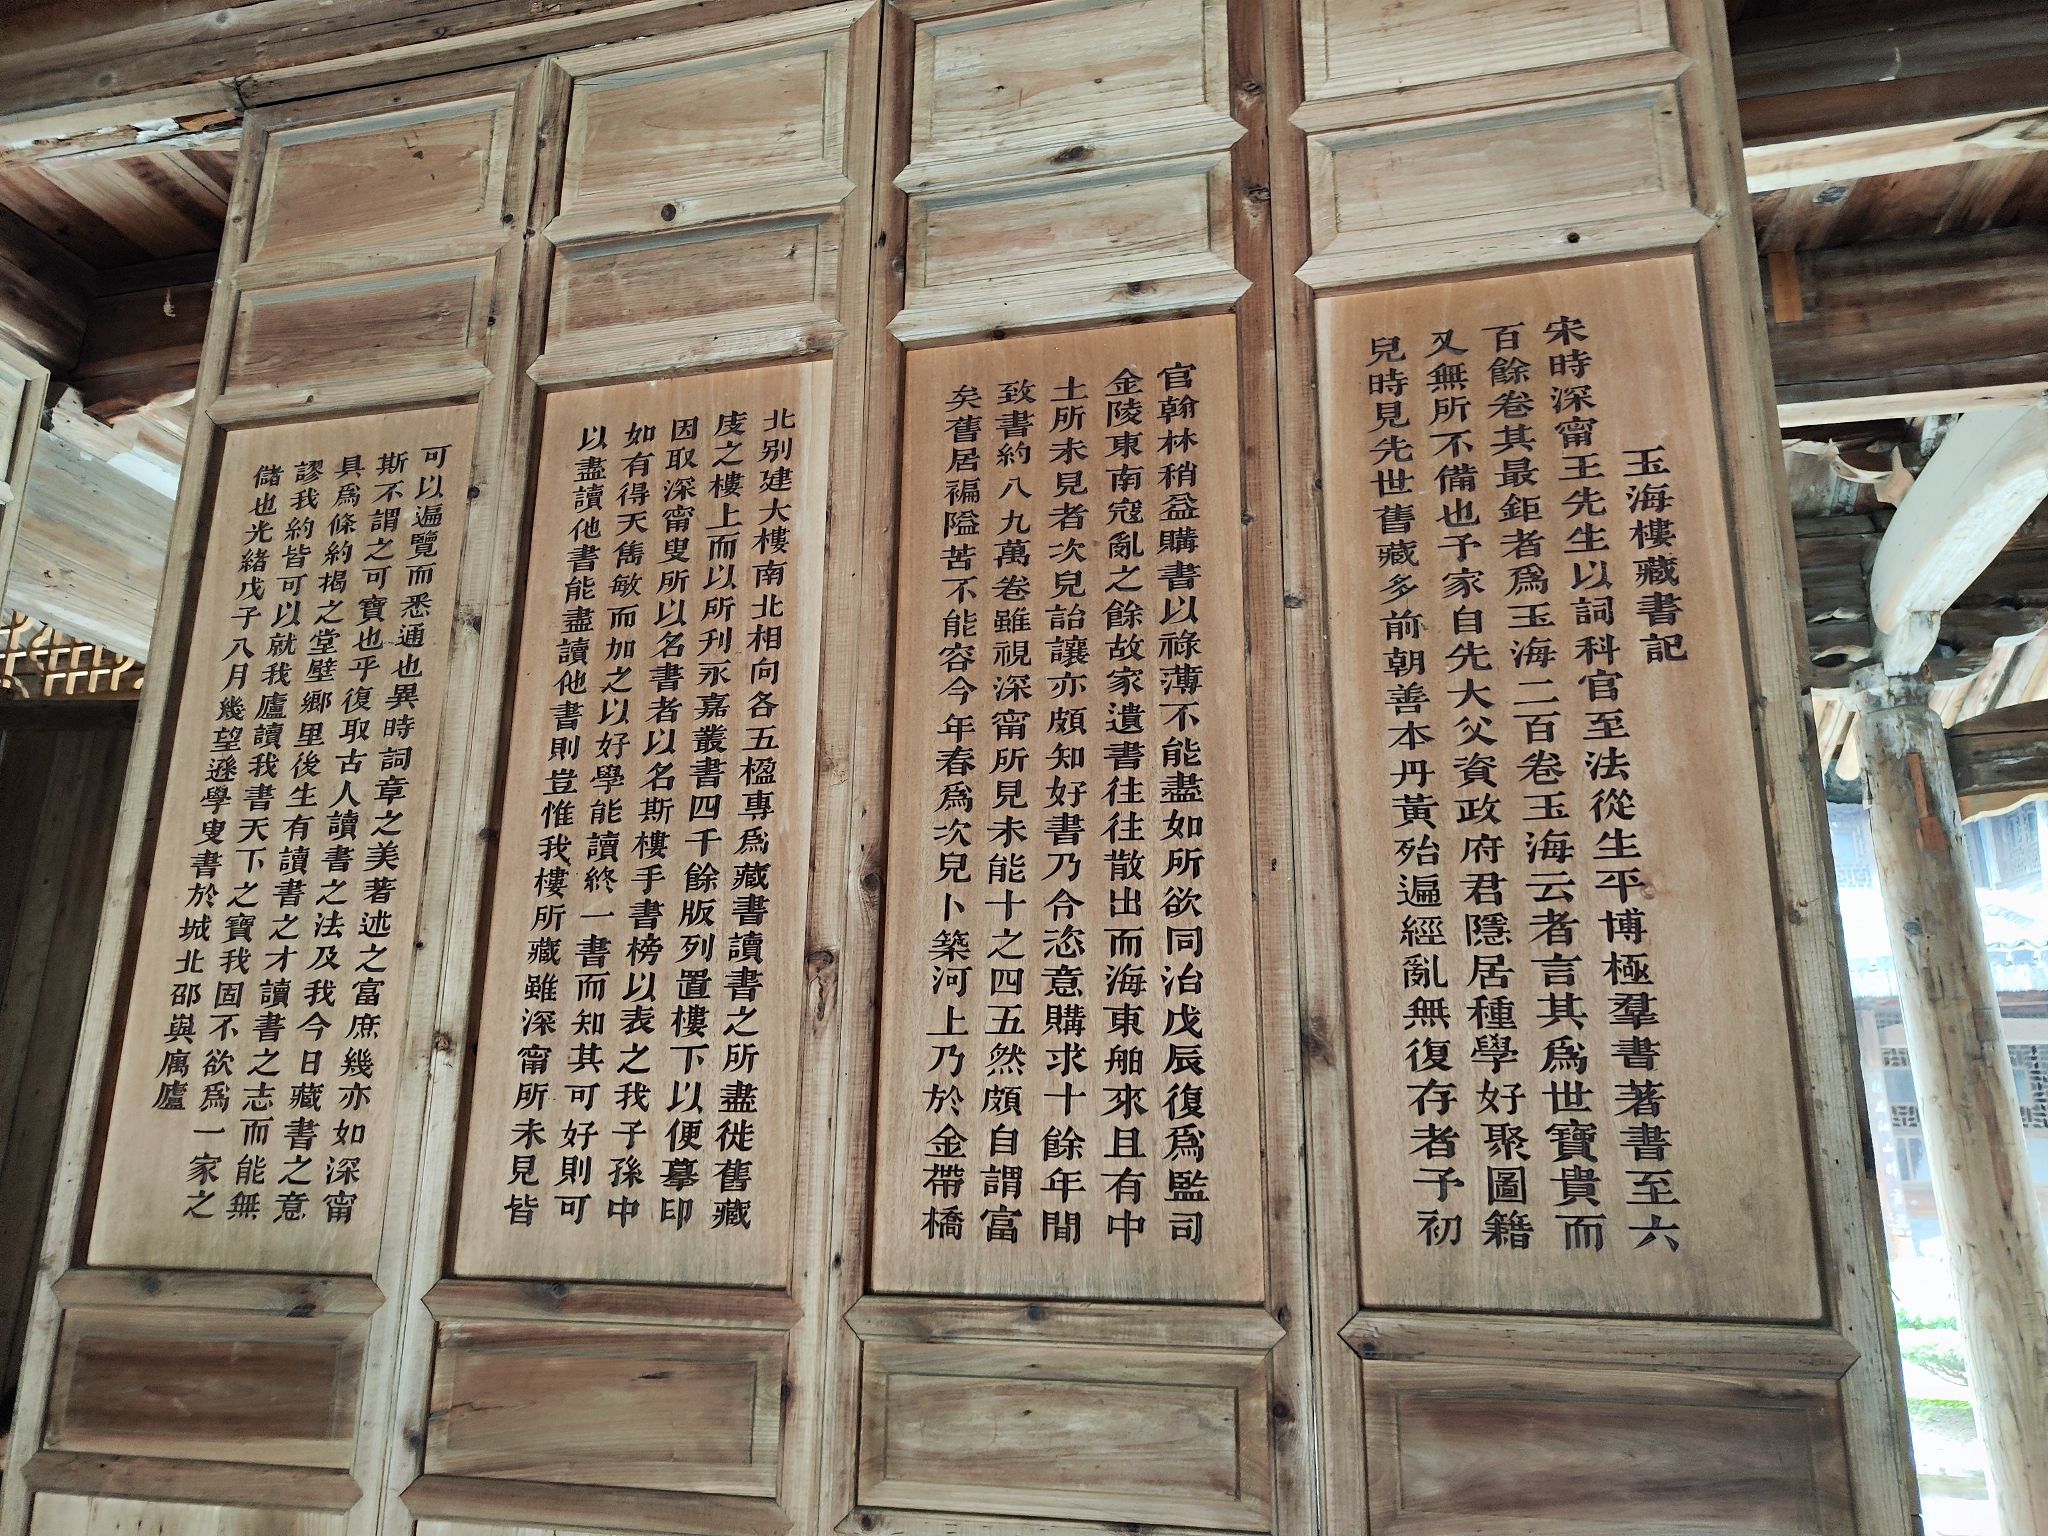 玉海樓藏書記
宋時深甯王先生以詞科官至法從生平博極羣書著書至六
百餘卷其最鉅者爲玉海二百卷玉海云者言其爲世寶貴而
又無所不備也予家自先大父資政府君隱居種學好聚圖籍
兒時見先世舊藏多前朝善本丹黃殆遍經亂無復存者予初
官翰林稍益購書以祿薄不能盡如所欲同治戊辰復爲監司
金陵東南寇亂之餘故家遺書往往散出而海東舶來且有中
土所未見者次兒詒讓亦頗知好書乃令恣意購求十餘年間
致書約八九萬卷雖視深甯所見未能十之四五然頗自謂富
矣舊居褊隘苦不能容今年春爲次兒卜築河上乃於金帶橋
北别建大樓南北相向各五楹專爲藏書讀書之所盡徙舊藏
庋之樓上而以所刋永嘉叢書四千餘版列置樓下以便摹印
因取深甯叟所以名書者以名斯樓手書榜以表之我子孫中
如有得天雋敏而加之以好學能讀終一書而知其可好則可
以盡讀他書能盡讀他書則豈惟我樓所藏雖深甯所未見皆
可以遍覽而悉通也異時詞章之美著述之富庶幾亦如深甯
斯不謂之可寶也乎復取古人讀書之法及我今日藏書之意
具爲條約揭之堂壁鄉里後生有讀書之才讀書之志而能無
謬我約皆可以就我廬讀我書天下之寶我固不欲爲一家之
儲也光緒戊子八月幾望遜學叟書於城北邵與厲廬